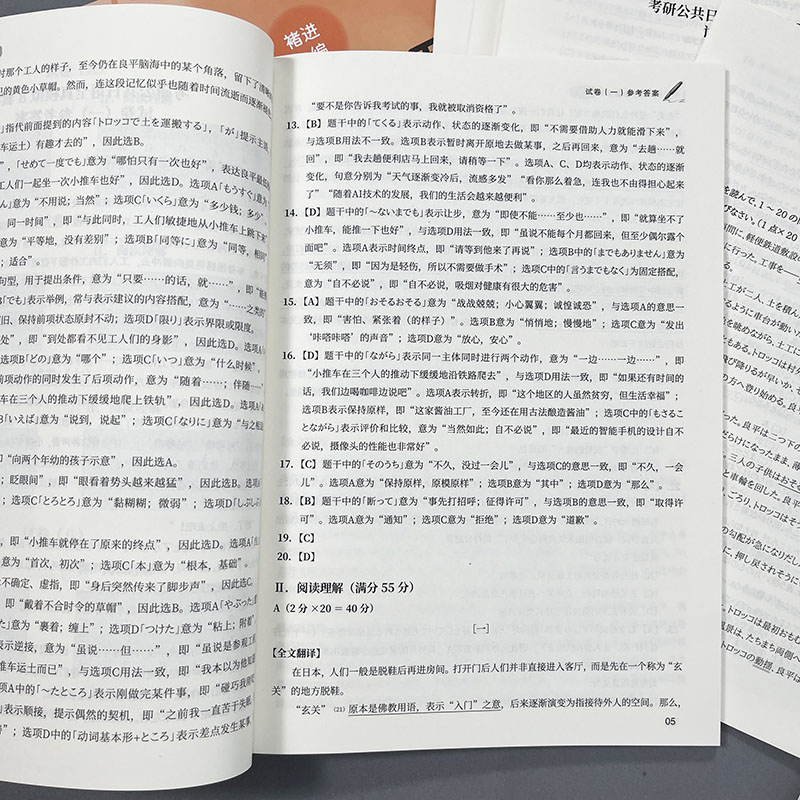 褚进
考研公共日
时那个工人的样子，至今仍在良平脑海中的某个角落，留下了清晰
的黄色小草帽。然而，连这段记忆似乎也随着时间流逝而逐渐
」指代前面提到的内容「トロッコで土を運搬する」，「が」提示主语
车运土）有趣才去的”，因此选B。
”，「せめて一度でも」意为“哪怕只有一次也好”，表达良平最低
工人们一起坐一次小推车也好”，因此选D。选项A「もうすぐ」意为
」意为“不用说；当然”；选项C「いくら」意为“多少钱；多少”
同一时间”，即“与此同时，工人们敏捷地从小推车上跳下来”
”意为“平等地，没有差别”；选项B「同等に」意为“同等，相同”
；适合”。
句型，用于提出条件，意为“只要……的话，就……”，即“
B「でも」表示举例，常与表示建议的内容搭配，意为“……之类的
旧、保持前项状态原封不动；选项D「限り」表示界限或限度。
处”，即“到处都看不见工人们的身影”，因此选D。选项A
选项B「どの」意为“哪个”；选项C「いつ」意为“什么时候”。
前项动作的同时发生了后项动作，意为“随着……；伴随……”
车在三个人的推动下缓缓地爬上铁轨”，因此选D。选项A
B「いえば」意为“说到，说起”；选项C「なりに」意为“与之相
即“向两个年幼的孩子示意”，因此选A。
；眨眼间”，即“眼看着势头越来越猛”，因此选B。选项A
；选项C「とろとろ」意为“黏糊糊；微弱”；选项D「しぶしぶ
，即“小推车就停在了原来的终点”，因此选D。选项A
意为“首次，初次”；选项C「本」意为“根本，基础”。
不确定、虚指，即“身后突然传来了脚步声”，因此选C。
即“戴着不合时令的草帽”，因此选B。选项A「やぶった」意
意为“裹着；缠上”；选项D「つけた」意为“粘上；附着”
表示逆接，意为“虽说……但……”，即“虽说是参观工程
车运土而已”，与选项C用法一致，即“我本以为他知
项A中的「～たところ」表示刚做完某件事，即“碰巧我刚
」表示顺接，提示偶然的契机，即“之前我一直苦于失眠
；选项D中的「动词基本形+ところ」表示差点发生某事，
试卷（一）参考答案
“要不是你告诉我考试的事，我就被取消资格了”。
13. 【B】题干中的「てくる」表示动作、状态的逐渐变化，即“不需要借助人力就能滑下来”，
与选项B用法不一致。选项B表示暂时离开原地去做某事，之后再回来，意为“去趟……就
回”，即“我去趟便利店马上回来，请稍等一下”。选项A、C、D均表示动作、状态的逐渐
变化，句意分别为“天气逐渐变冷后，流感多发”“看你那么着急，连我也不由得担心起来
了”“随着AI技术的发展，我们的生活会越来越便利”。
14. 【D】题干中的「～ないまでも」表示让步，意为“即使不能……至少也……”，即“就算坐不了
小推车，能推一下也好”，与选项D用法一致，即“虽说不能每个月都回来，但至少偶尔露个
面吧”。选项A表示时间终点，即“请等到他来了再说”；选项B中的「までもありません」意为
“无须”，即“因为是轻伤，所以不需要做手术”；选项C中的「言うまでもなく」为固定搭配，
意为“自不必说”，即“自不必说，吸烟对健康有很大的危害”。
15. 【A】题干中的「おそるおそる」意为“战战兢兢；小心翼翼；诚惶诚恐”，与选项A的意思一
致，即“害怕、紧张着（的样子）”。选项B意为“悄悄地；慢慢地”；选项C意为“发出
‘咔嗒咔嗒’的声音”；选项D意为“放心，安心”。
16. 【D】题干中的「ながら」表示同一主体同时进行两个动作，意为“一边……一边……”，即
“小推车在三个人的推动下缓缓地沿铁路爬去”，与选项D用法一致，即“如果还有时间的
话，我们边喝咖啡边说吧”。选项A表示转折，即“这个地区的人虽然贫穷，但生活幸福”；
选项B表示保持原样，即“这家酱油工厂，至今还在用古法酿造酱油”；选项C中的「もさるこ
とながら」表示评价和比较，意为“当然如此；自不必说”，即“最近的智能手机的设计自不
必说，摄像头的性能也非常好”。
17. 【C】题干中的「そのうち」意为“不久，没过一会儿”，与选项C的意思一致，即“不久，一会
儿”。选项A意为“保持原样，原模原样”；选项B意为“其中”；选项D意为“那么”。
18. 【B】题干中的「断って」意为“事先打招呼；征得许可”，与选项B的意思一致，即“取得许
可”。选项A意为“通知”；选项C意为“拒绝”；选项D意为“道歉”。
19. 【C】
20. 【D】
Ⅱ. 阅读理解（满分 55 分）
A（2 分 ×20 = 40 分）
[一]
【全文翻译】
在日本，人们一般是脱鞋后再进房间。打开门后人们并非直接进入客厅，而是先在一个称为“玄
关”的地方脱鞋。
“玄关” (21) 原本是佛教用语，表示“入门”之意，后来逐渐演变为指接待外人的空间。那么，
05
を読んで、1～20 の
びなさい。(1 点×20
間に、軽便鉄道敷設の
に行った。工事を――
土工が二人、土を積ん
るように車台が動いた
を眺めながら、土工に
ともある。トロッコは村外
飛び降りるが早いか、そ
の方へ登り始める。良平
た。良平は二つ下の
だらけになったまま、薄
三人の子供はおそる
と車輪を回した。良平
ごろり、トロッコはそ
の勾配が急になりだし
に、押し戻されそうに
トロッコは最初おもむ
風景は、たちまち両側へ
トロッコの動揺、良平は